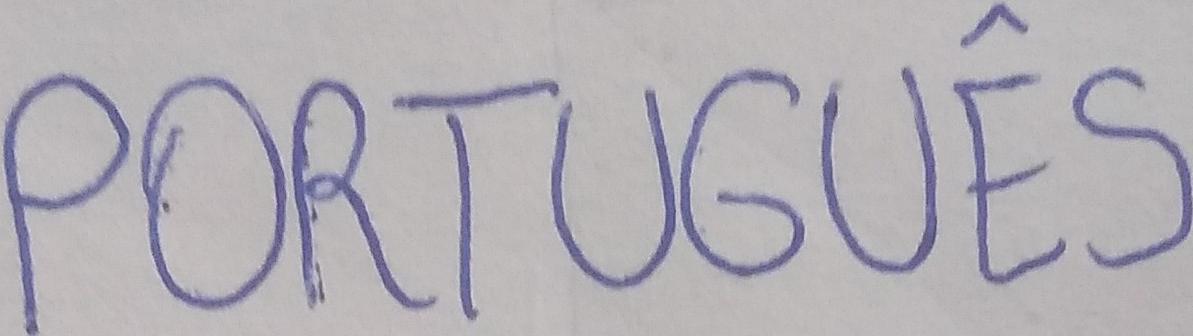 PORTUGUÊS